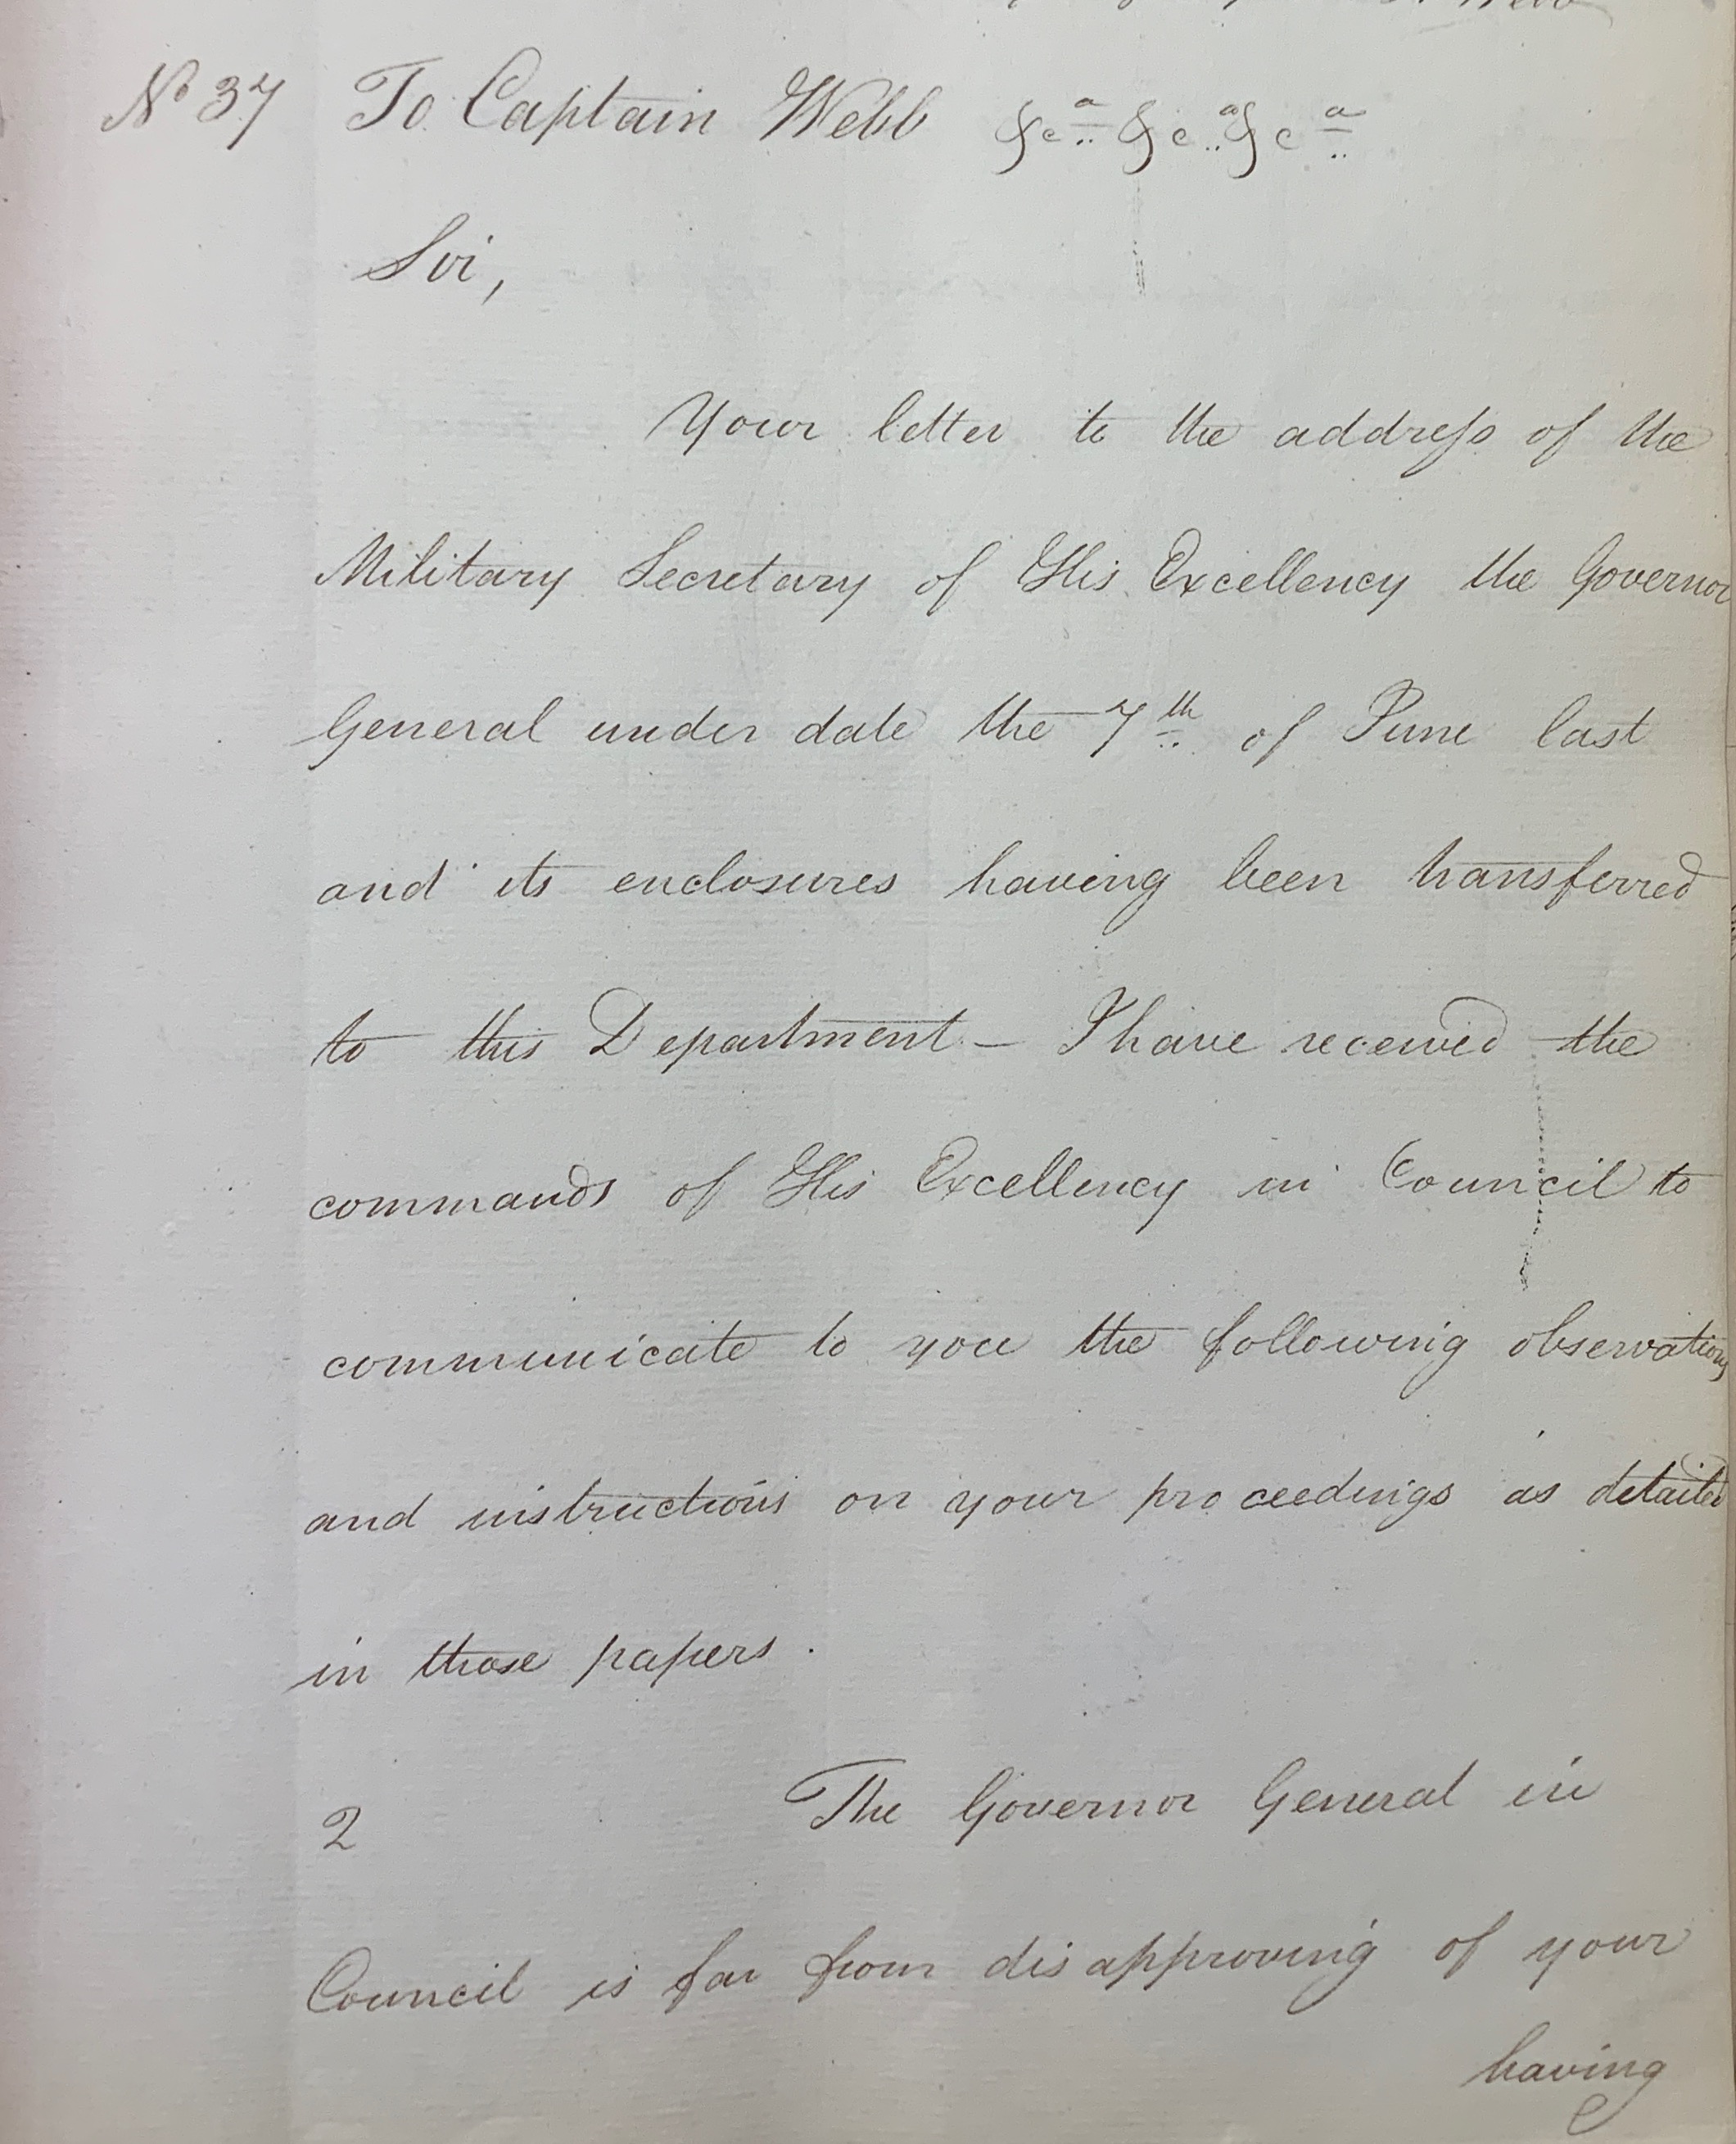 Webb
No 37 To Captain Webb &ca &ca &ca
Sir,
Your letter to the address of the
Military Secretary of His Excellency the Governor
General under date the 7th of June last
and its enclosures having been transferred
to this Department – I have received the
commands of His Excellency in Council to
communicate to you the following observations
and instructions on your proceedings as detailed
in those papers.
2 The Governor General in
Council is far from disapproving of your
having